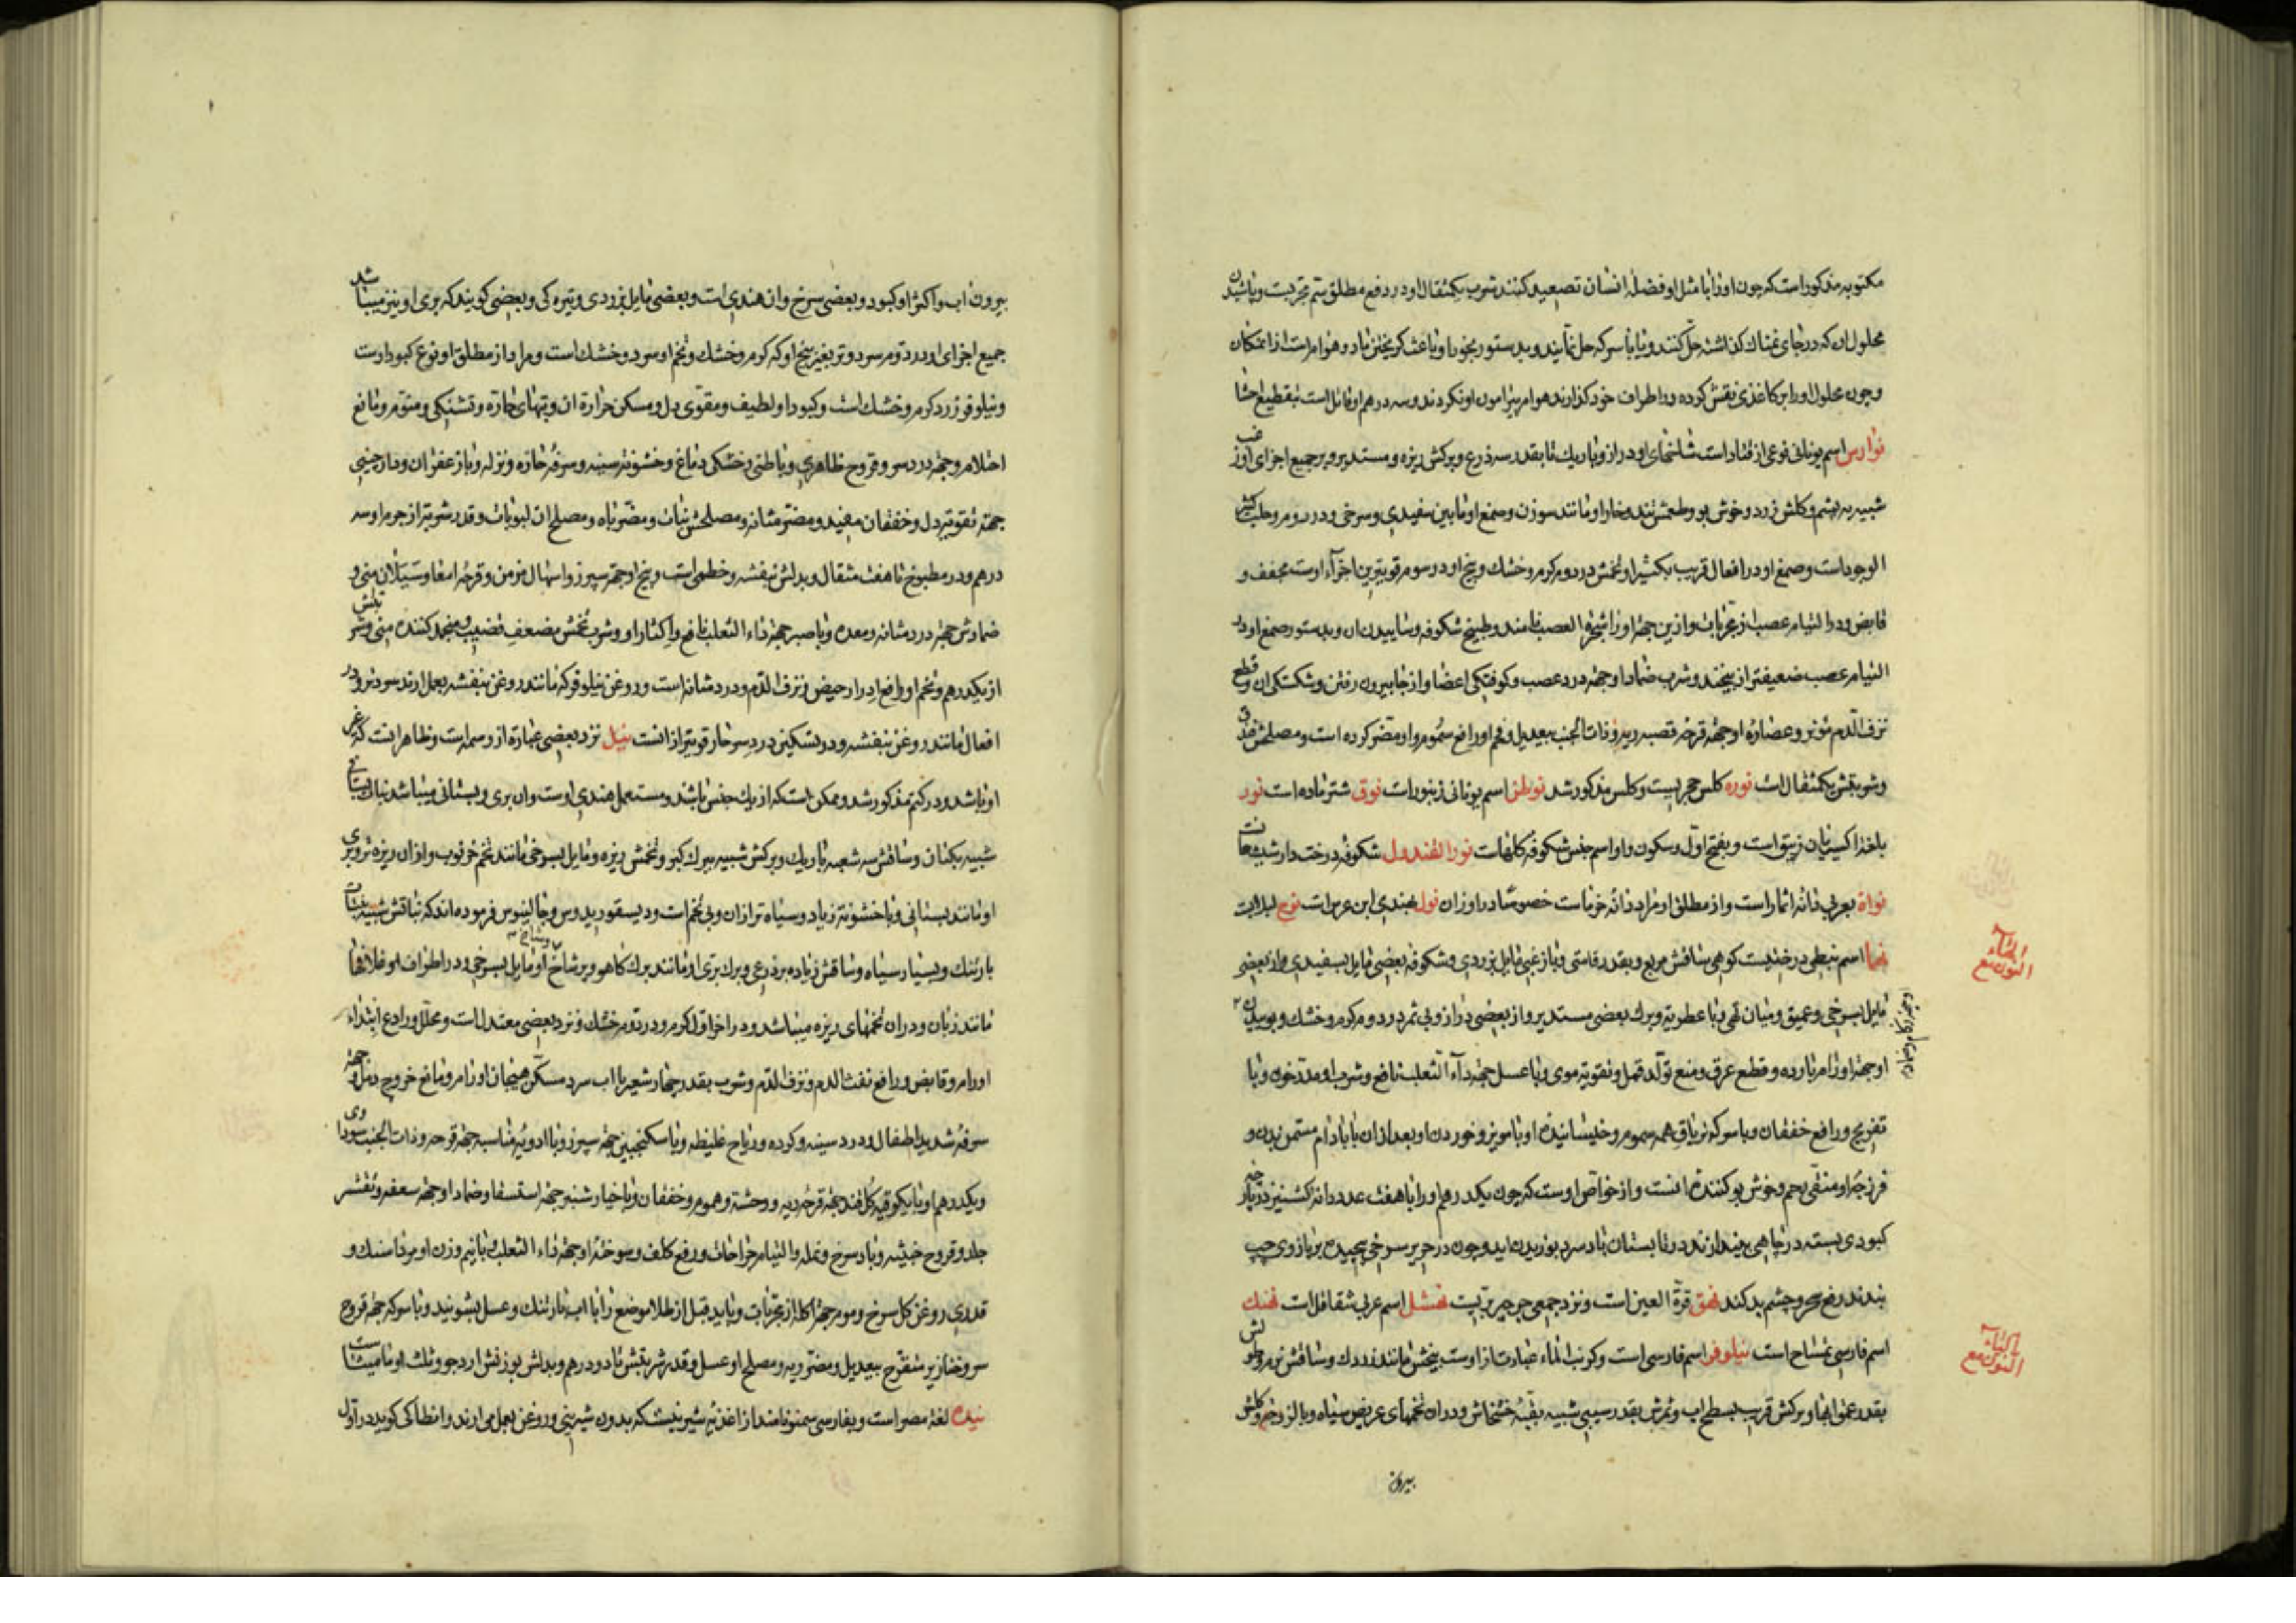 مکتوبه مذکور است که چون اورا با مثل او فضلهٔ انسان تصعید کنند شرب یکمثقال او در دفع مطلق سم مجربست و پاشیدن
محلول ان که در جای نمناک کذاشته حل کنند و یا با سرکه حل نمایند و بدستور بخور او باعث کریختن تمام هوام است از ان مکان
و چون محلول او را بر کاغذی نقش کرده در اطراف خود کذارند هوام پیرامون او نکردند و سه درهم او قاتل است بتقطیع احشا
نوارس اسم یونانی نوعی از قتاد است شاخهای او دراز و باریک تا بقدر سه ذرع و برکش ریزه و مستدیر و بر جمیع اجزای او زغب
شبیه به پشم و کلش زرد و خوش بو و طعمش تند و خار او مانند سوزن و صمغ او مابین سفیدی و سرخی و در روم و حلب کثیر
الوجود است و صمغ او در افعال قریب بکثیرا و تخمش در دوم کرم و خشک و بیخ او در سوم قویترین اجزاء اوست مجفف و
قابض و در التیام عصب از مجربات و ازین جهة اورا شجرة العصب نامند و طبیخ شکوفه و ساییدن ان و بدستور صمغ او در
التیام عصب ضعیفتر از بیخند و شرب ضماد او جهة درد عصب و کوفتکی اعضا و از جا بیرون رفتن و شکستکی ان و قطع
نزف الدم مؤثر و عصارهٔ او جهة قرحهٔ قصبه ریه و ذات الجنب بیعدیل و فم او رافع سموم و او مضر کرده است و مصلحش
وشربتش یکمثقال است نوره کلس حجریست و کلس مذکور شد نوطن اسم یونانی زنبور است نوق شتر ماده است نور
بلغة اکسیریان زیبق است و بفتح اول و سکون واو اسم جنس شکوفه کلهاست نور الفندول شکوفه درخت دارشیشعانست
نواة بعربی دانه اثمار است و از مطلق او مراد دانه خرماست خصوصا در اوزان نول بهندی ابن عرس است نوح لبلابست
نما اسم نبطی درختیست کوهی ساقش مربع و بقدر قامتی و با زغبی مایل بزردی و شکوفه بعضی مایل بسفیدی و از بعضی
مایل بسرخی و عمیق و میان تهی و با عطریة و برک بعضی مستدیر و از بعضی دراز و بی ثمر در دوم کرم و خشک و بوییدن
او جهة زکام و ضماد
او جهة اورام بارده و قطع عرق و منع تولد قمل و تقویة موی و با عسل جهة داء الثعلب نافع و شرب او مدر خون و با
تفریح و رافع خفقان و با سرکه تریاق همه سموم و خیسانیدهٔ او با مویز و خوردن او بعد از ان با بادام مسمن بدن و
فرزجهٔ او منقی رحم و خوش بو کنندهٔ انست و از خواص اوست که چون یکدرهم او را با هفت عدد دانه کشنیز در پارچه
کبودی بسته در چاهی بیندازند در تابستان باد سرد بوزیدن اید و چون در حریر سرخی پیچیده بر بازوی چپ
بندند رفع سحر و چشم بد کند نهق قرة العین است و نزد جمعی جرجیر بریست نهشل اسم عربی شقاقل است نهنک
اسم فارسی تمساح است نیلوفر اسم فارسی است و کرنب الماء عبارت از اوست بیخش مانند زردک و ساقش نرم و طولش
بقدر عمق ابها و برکش قریب بسطح اب و ثمرش بقدر سیبی شبیه بقبهٔ خشخاش و در ان تخمهای عریض سیاه و با لزوجة و کلش
بیرون
بیرون اب و اکثر او کبود و بعضی سرخ و ان هندی است و بعضی مایل بزردی و تیره کی و بعضی کویند که بری او نیز میباشد
جمیع اجزای او در دوم سرد و تر بغیر بیخ او که کرم و خشک و تخم او سرد و خشک است و مراد از مطلق او نوع کبود اوست
و نیلوفر زرد کرم و خشک است و کبود او لطیف و مقوی دل و مسکن حرارة ان و تبهای حاره و تشنکی و منوم و مانع
احتلام و جهة درد سر و قروح ظاهری و باطنی و خشکی دماغ و خشونة سینه و سرفهٔ حاره و نزله و با زعفران و دارچینی
جهة تقویة دل و خفقان مفید و مضر مثانه و مصلحش نبات و مضر باه و مصلح ان لبوبات و قدر شربة از جرم او سه
درهم و در مطبوخ تا هفت مثقال و بدلش بنفشه و خطمی است و بیخ او جهة سپرز و اسهال مزمن و قرحهٔ امعا و سیلان منی و
ضمادش جهة درد مثانه و معده و با صبر جهة داء الثعلب نافع و اکثار او و شرب تخمش مضعف قضیب و منجمد کننده منی و شربتش
از یکدرهم و تخم او رافع ادرار حیض و نزف الدم و درد مثانه است و روغن نیلوفر که مانند روغن بنفشه بعمل ارند سرد تر و در
افعال مانند روغن بنفشه و در تسکین درد سر حار قویتر از انست نیل نزد بعضی عبارة از وسمه است و ظاهر انست که غیر
او باشد و در کتم مذکور شد و ممکن است که از یک جنس باشند و مستعمل هندی اوست و ان بری و بستانی میباشد نبات بستانی
شبیه بکتان و ساقش سه شعبه باریک و برکش شبیه ببرک کبر و تخمش ریزه و مایل بسرخی مانند تخم خرنوب و از ان ریزه تر و بری
او مانند بستانی و با خشونة زیاد و سیاه تر از ان و بی تخم است و دیسقوریدوس و جالینوس فرموده اند که نباتش شبیه بنبات
بارتنک و بسیار سیاه و ساقش زیاده بر ذرعی و برک بری او مانند برک کاهو و پر شاخ و شاخ او مایل بسرخی و در اطراف او غلافها
مانند زبان و در ان تخمهای ریزه میباشد و در اخر اول کرم و در دوم خشک و نزد بعضی معتدل است و محلل و رادع ابتداء
اورام و قابض و رافع نفث الدم و نزف الدم و شرب بقدر چهار شعیر با اب سرد مسکن هیجان اورام و مانع خروج دمل و جهة
سرفهٔ شدید اطفال و درد سینه و کرده و ریاح غلیظه و با سکنجبین جهة سپرز و با ادویهٔ مناسبه جهة قرحه و ذات الجنب سوداوی
و یکدرهم او با یکوقیه کلقند جهة قرحه ریه و وحشة و هموم و خفقان و با خیارشنبر جهة استسقا و ضماد او جهة سعفه و تقشر
جلد و قروح خبیثه و باد سرخ و نمله و التیام جراحات و رفع کلف و سوختهٔ او جهة داء الثعلب و با نیم وزن او مرداسنک و
قدری روغن کل سرخ و موم جهة اکله از مجربات و باید قبل از طلا موضع را با اب بارتنک و عسل بشویند و با سرکه جهة قروح
سر و خنازیر متقرح بیعدیل و مضر ریه و مصلح او عسل و قدر شربتش تا دو درهم و بدلش بوزنش ارد جو و ثلث او مامیثاست
نیده لغة مصر است و بفارسی سمنو نامند از اغذیه شیرینست که بدون شیرینی و روغن بعمل می ارند و انطاکی کوید در اول